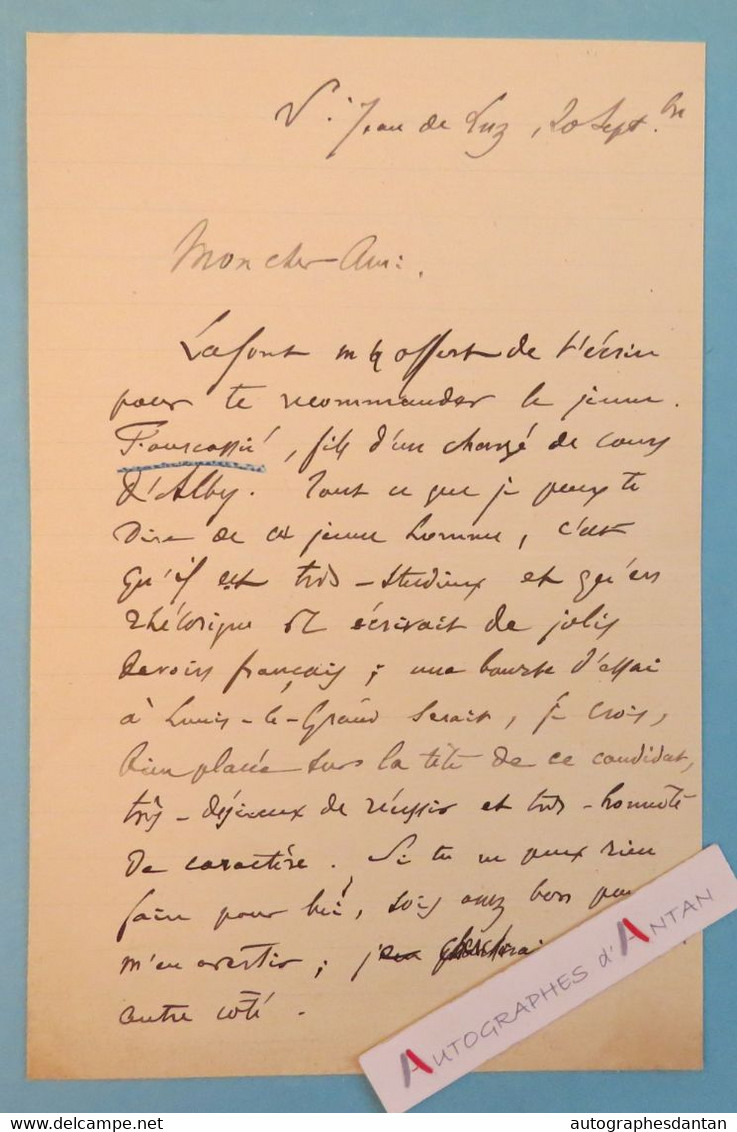 St Jean de Luz, 20 Septbre
Mon cher Ami,
Lafont m'a offert de t'écrire
pour te recommander le jeune
Fourcassié, fils d'un chargé de cours
d'Alby. Tout ce que je peux te
dire de ce jeune homme, c'est
qu'il est très-studieux et qu'en
rhétorique il écrivait de jolis
devoirs français ; une bourse d'essai
à Louis-le-Grand serait, je crois,
bien placée sur la tête de ce candidat,
très-désireux de réussir et très-honnête
de caractère. Si tu ne peux rien
faire pour lui, sois assez bon pour
m'en avertir ; je chercherai
autre côté.
AUTOGRAPHES d'ANTAN
delcampe.net
autographesdantan